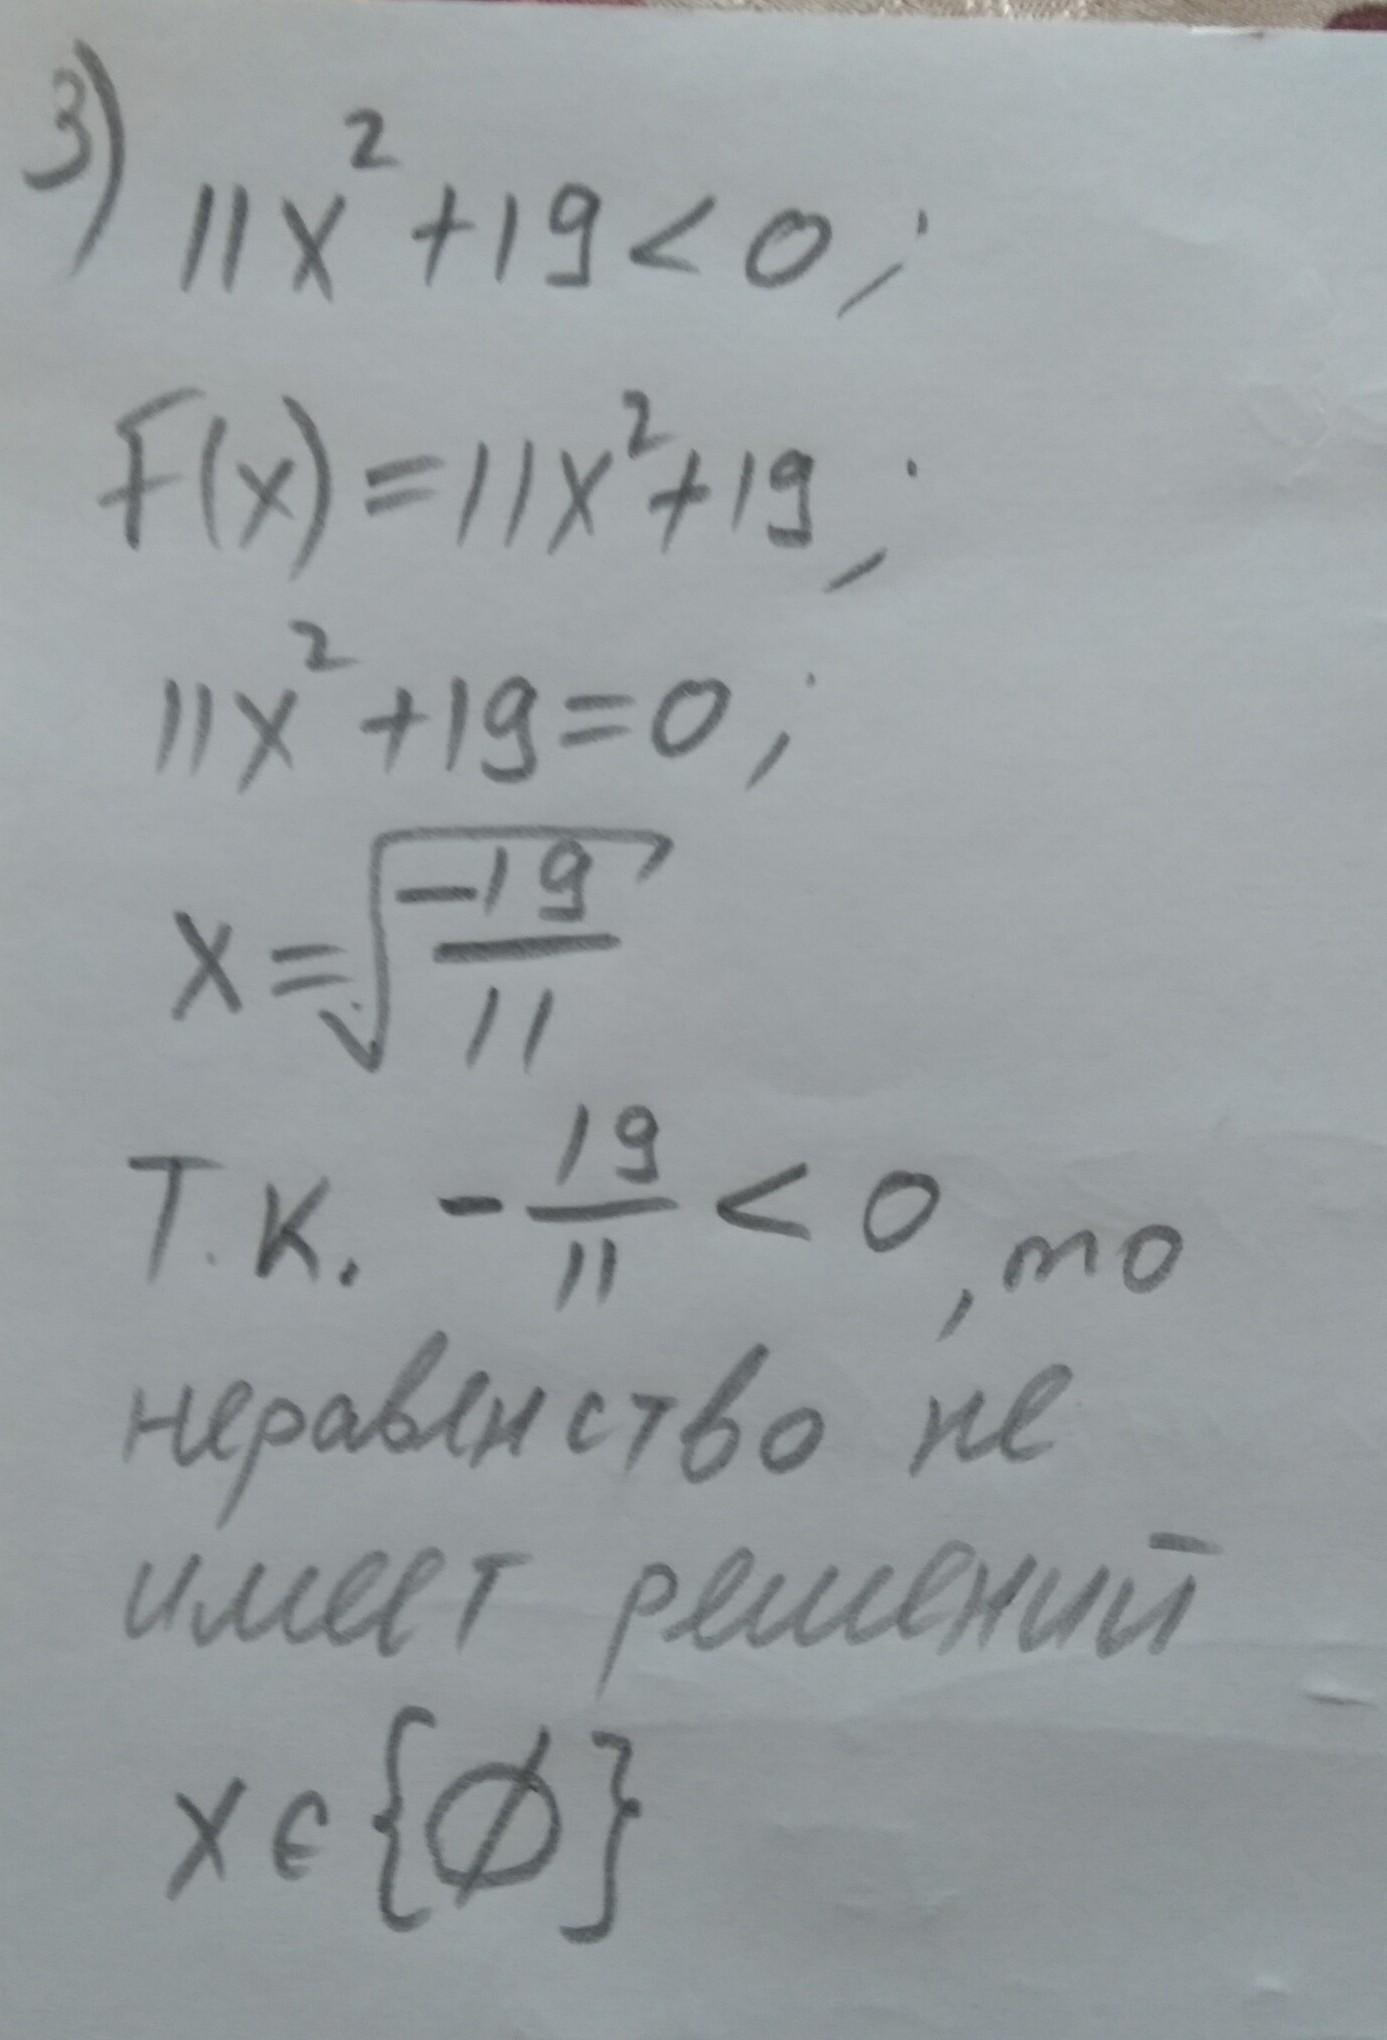 3)
11x² + 19 < 0;
F(x) = 11x² + 19;
11x² + 19 = 0;
x = √(-19/11)
Т.К. - 19/11 < 0, то
неравенство не
имеет решений
x ∈ {∅}